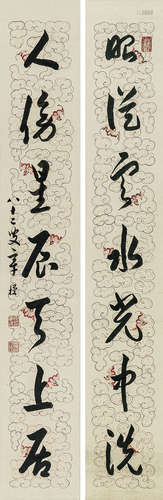 眼從雲水光中洗
人傍星辰天上居
八十二叟